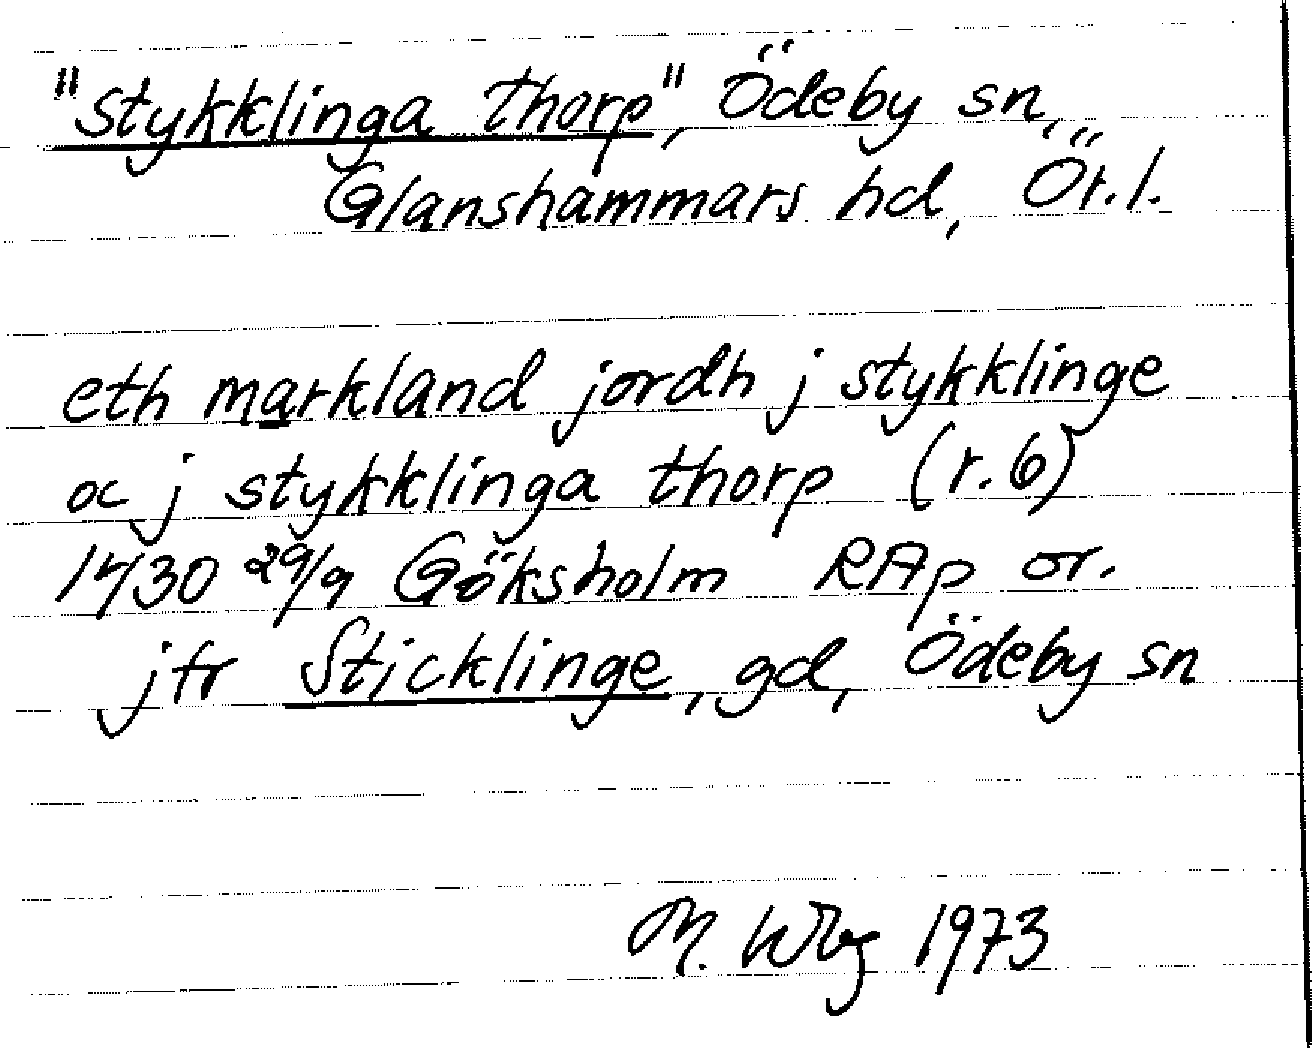 "Stykklinga thorp", Ödeby sn,
Glanshammars hd, Ör.l.
eth markland jordh j stykklinge
oc j stykklinga thorp (r.6)
1430 29/9 Göksholm RAp or.
jfr Sticklinge, gd, Ödeby sn
M. Wbg 1973